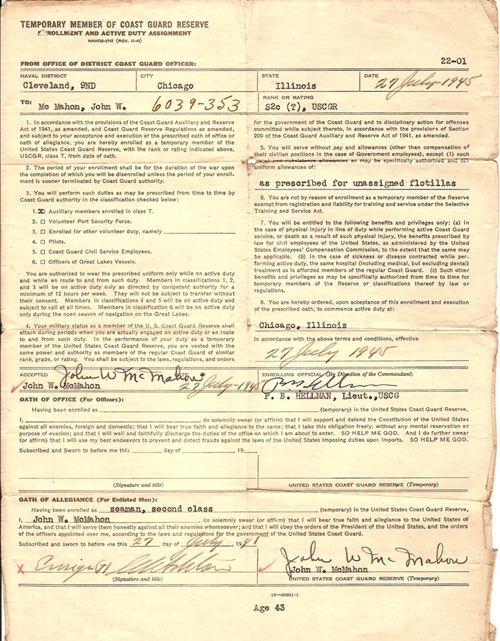 TEMPORARY MEMBER OF COAST GUARD RESERVE
ENROLLMENT AND ACTIVE DUTY ASSIGNMENT
FROM OFFICE OF DISTRICT COAST GUARD OFFICER:
22-01
NAVAL DISTRICT CITY STATE DATE
Cleveland, 9ND Chicago Illinois 27 July 1945
TO: RANK OR RATING
Mc Mahon, John W. 6039-353 S2c (T), USCGR
1. In accordance with the provisions of the Coast Guard Auxiliary and Reserve
Act of 1941, as amended, and Coast Guard Reserve Regulations as amended,
and subject to your acceptance and execution of the prescribed oath of office or
oath of allegiance, you are hereby enrolled as a temporary member of the
United States Coast Guard Reserve, with the rank or rating indicated above,
USCGR, class T, from date of oath.
2. The period of your enrollment shall be for the duration of the war upon
the completion of which you will be disenrolled unless the period of your enroll-
ment is sooner terminated by Coast Guard authority.
3. You will perform such duties as may be prescribed from time to time by
Coast Guard authority in the classification checked below:
1. X Auxiliary members enrolled in class T.
2. Volunteer Port Security Force.
3. Enrolled for other volunteer duty, namely
4. Pilots.
5. Coast Guard Civil Service Employees.
6. Officers of Great Lakes Vessels.
You are authorized to wear the prescribed uniform only while on active duty
and while en route to and from such duty. Members in classifications 1, 2,
and 3 will be on active duty only as directed by competent authority for a
minimum of 12 hours per week. They will not be subject to transfer without
their consent. Members in classifications 4 and 5 will be on active duty and
subject to call at all times. Members in classification 6 will be on active duty
only during the open season of navigation on the Great Lakes.
4. Your military status as a member of the U. S. Coast Guard Reserve shall
attach during periods when you are actually engaged on active duty or en route
to and from such duty. In the performance of your duty as a temporary
member of the United States Coast Guard Reserve, you are vested with the
same power and authority as members of the regular Coast Guard of similar
rank, grade, or rating. You shall be subject to the laws, regulations, and orders
for the government of the Coast Guard and to disciplinary action for offenses
committed while subject thereto, in accordance with the provisions of Section
209 of the Coast Guard Auxiliary and Reserve Act of 1941, as amended.
5. You will serve without pay and allowances (other than compensation of
their civilian positions in the case of Government employees), except (1) such
as may be specifically authorized and (2)
uniform allowances of:
as prescribed for unassigned flotillas
6. You are by reason of enrollment as a temporary member of the Reserve
exempt from registration and liability for training and service under the Selective
Training and Service Act.
7. You will be entitled to the following benefits and privileges only: (a) In
the case of physical injury in line of duty while performing active Coast Guard
service, or death as a result of such physical injury, the benefits prescribed
by law for civil employees of the United States, as administered by the United
States Employees' Compensation Commission, to the extent that the same may
be applicable. (b) In the case of sickness or disease contracted while per-
forming active duty, the same hospital (including medical, but excluding dental)
treatment as is afforded members of the regular Coast Guard. (c) Such other
benefits and privileges as may be specifically authorized from time to time for
temporary members of the Reserve or classifications thereof by law or
regulations.
8. You are hereby ordered, upon acceptance of this enrollment and execution
of the prescribed oath, to commence active duty at:
Chicago, Illinois
In accordance with the above terms and conditions, effective
27 July 1945
ACCEPTED John W Mc Mahon 27 July 1945
John W. McMahon
ENROLLING OFFICIAL (By Direction of the Commandant)
P. B. HELLMAN, Lieut., USCG
OATH OF OFFICE (For Officers):
Having been enrolled as (temporary) in the United States Coast Guard Reserve,
I, do solemnly swear (or affirm) that I will support and defend the Constitution of the United States
against all enemies, foreign and domestic; that I will bear true faith and allegiance to the same; that I take this obligation freely, without any mental reservation or
purpose of evasion; and that I will well and faithfully discharge the duties of the office on which I am about to enter. SO HELP ME GOD. And I do further swear
(or affirm) that I will use my best endeavors to prevent and detect frauds against the laws of the United States imposing duties upon imports. SO HELP ME GOD.
Subscribed and Sworn to before me this day of , 19
(Signature and title) UNITED STATES COAST GUARD RESERVE (Temporary)
OATH OF ALLEGIANCE (For Enlisted Men):
Having been enrolled as seaman, second class (temporary) in the United States Coast Guard Reserve,
I, John W. McMahon, do solemnly swear (or affirm) that I will bear true faith and allegiance to the United States of
America, and that I will serve them honestly against all their enemies whomsoever; and that I will obey the orders of the President of the United States, and the orders
of the officers appointed over me, according to the laws and regulations for the government of the United States Coast Guard.
Subscribed and sworn to before me this 27 day of July 194
John W Mc Mahon
John W. McMahon
(Signature and title) UNITED STATES COAST GUARD RESERVE (Temporary)
Age 43